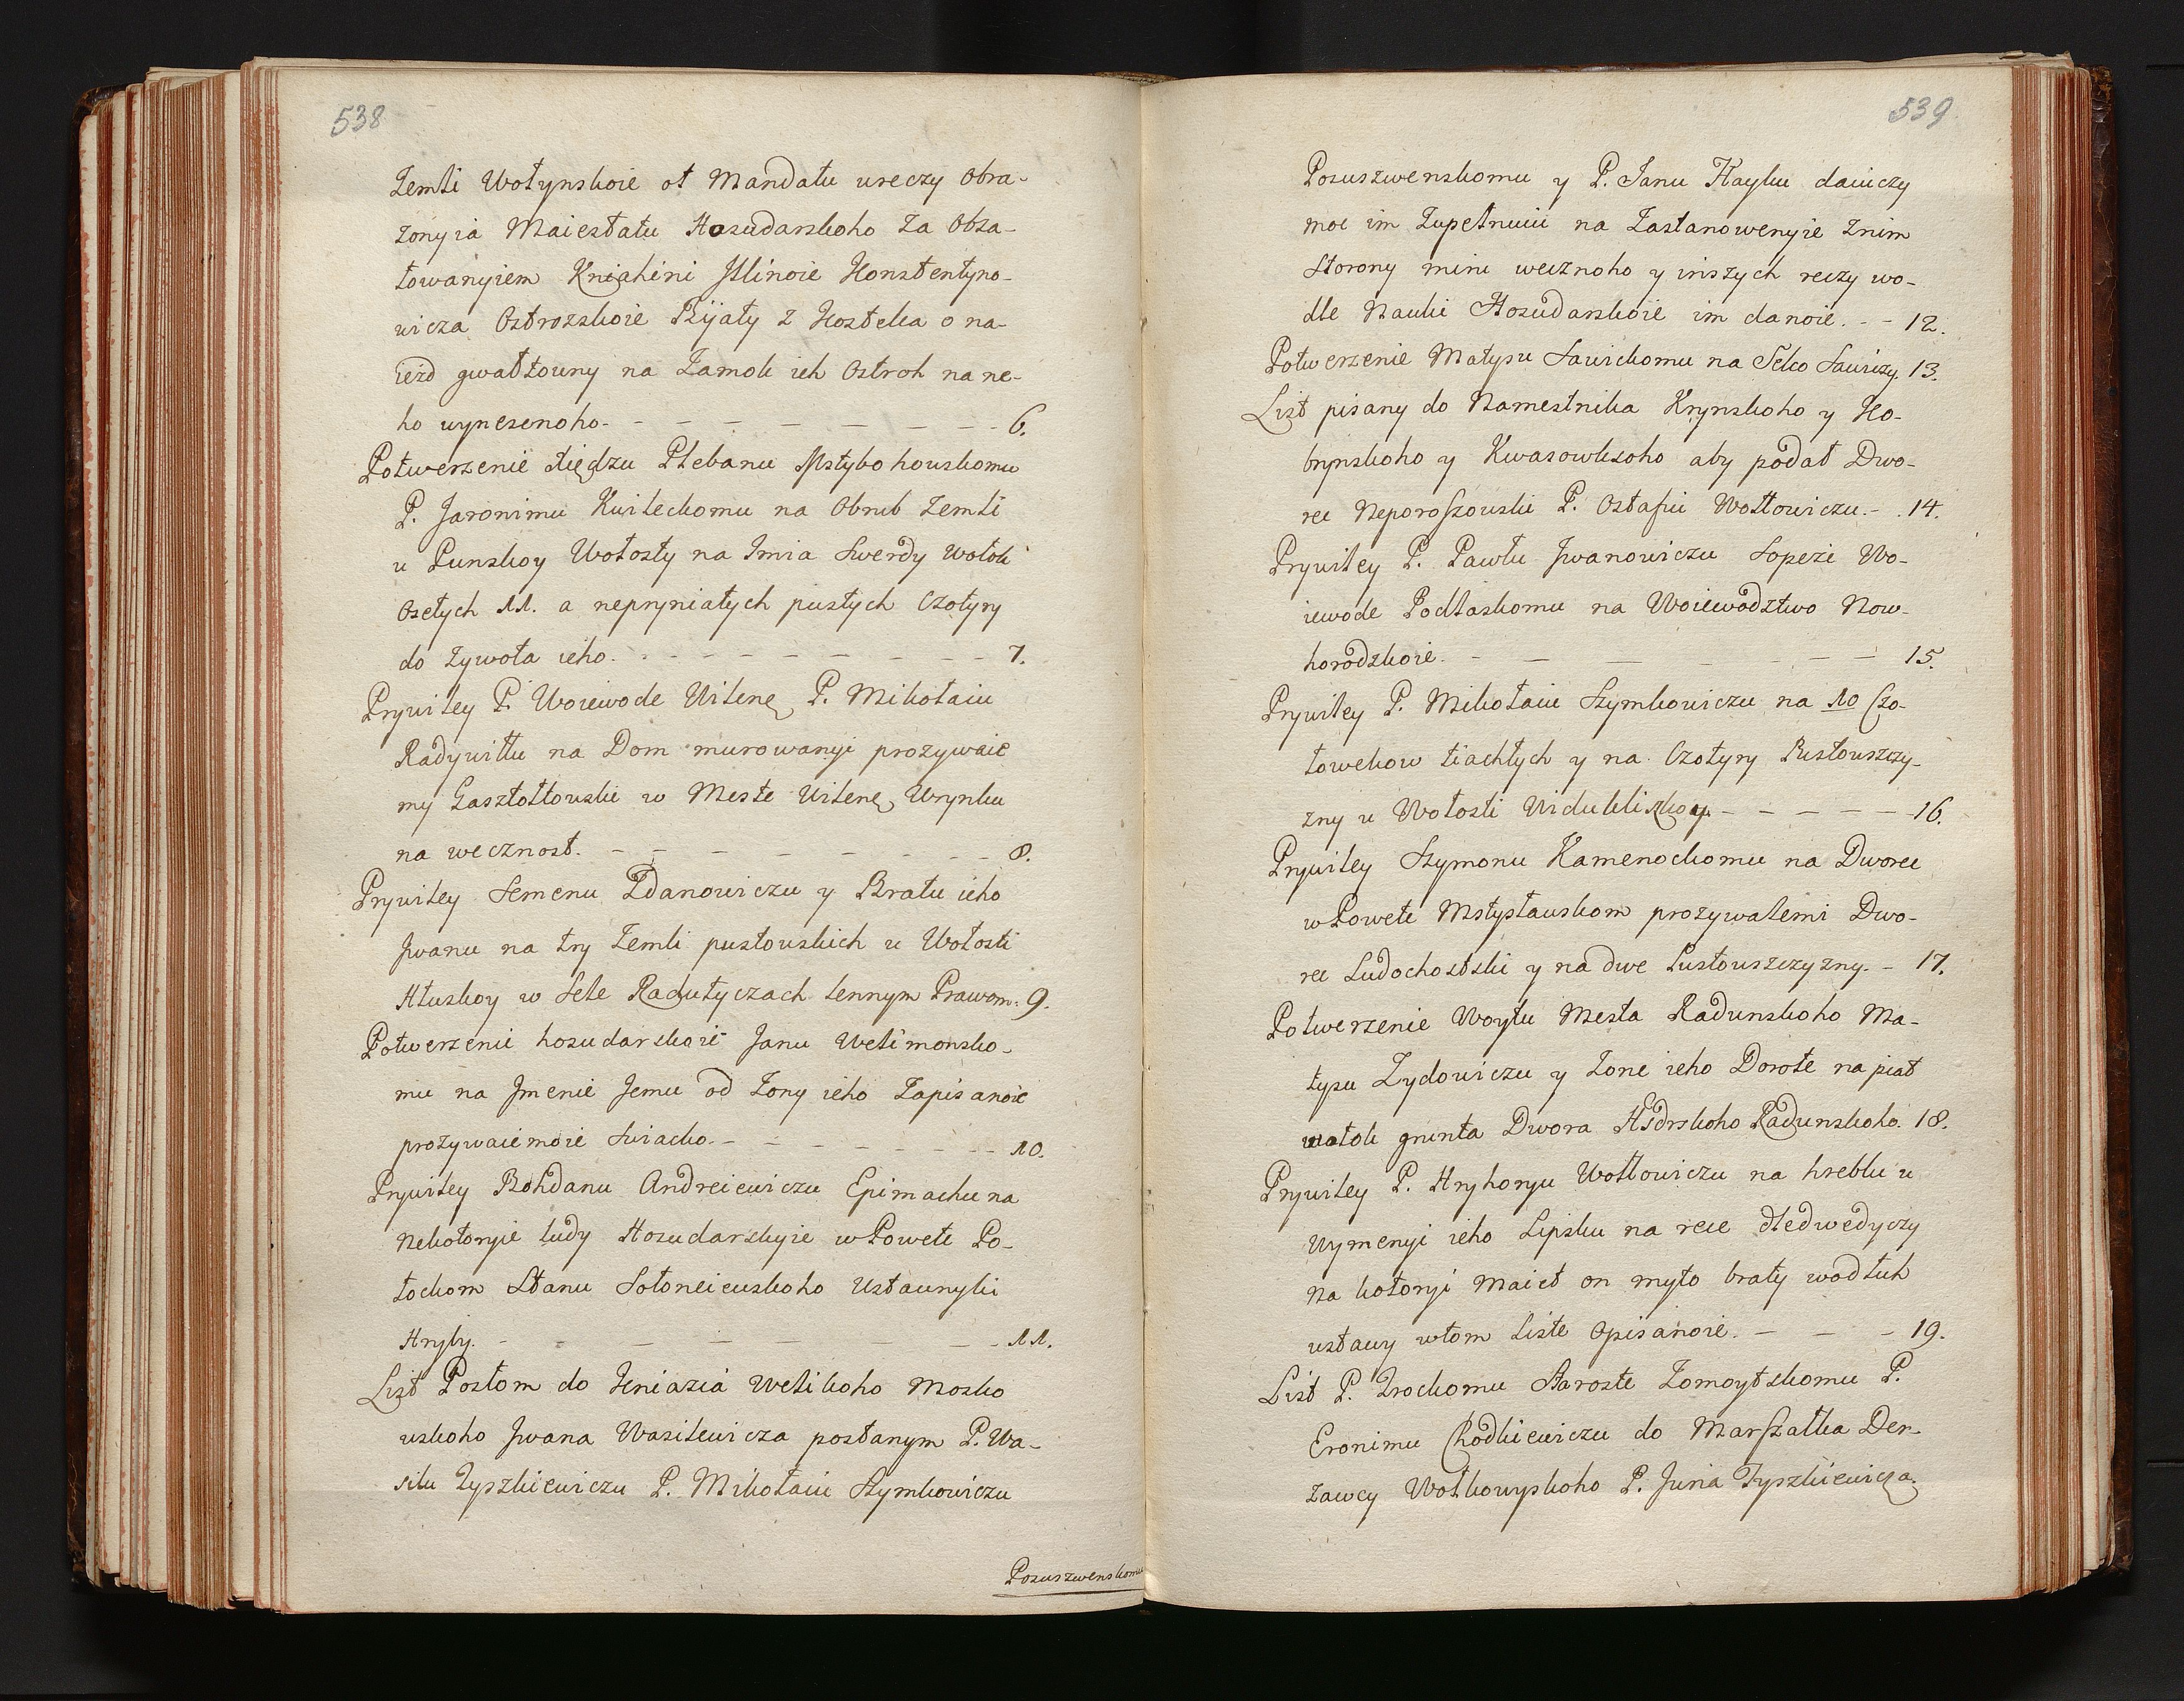 538
Zemli Wołynskoie ot Mandatu ureczy Obra-
zonyia Maiestatu Hosudarskoho Za Obza-
łowanyiem Kniahini Jlinoie Konstentyno-
wicza Ostrozskoie Bijaty z Kostelca o na-
iezd gwałtowny na Zamok ieh Ostroh na ne-
ho wynesenoho. - - - - - - - - 6.
Potwerzenie Xiędzu Plebanu Mstybohouskomu
P. Jaronimu Kwileckomu na Obrub Zemli
u Punskoy Wołosty na Jmia Swerdy Wołok
Osełych 11. a nepryniatych pustych Czotyry
do Zywota ieho. - - - - - - - - 7.
Prywiley P. Woiewode Wilenę P. Mikołaiu
Radywiłu na Dom murowanyi prozywaie
my Gasztołtowski w Meste Wilenę Wrynku
na wecznost. - - - - - - - - 8.
Prywiley Semenu Zdanowiczu y Bratu ieho
Jwanu na try Zemli pustouskich u Wołosti
Hłuskoy w Sele Radutyczach lennym Prawom. 9.
Potwerzenie hosudarskoie Janu Welimonsko-
mu na Jmenie Jemu od Zony ieho Zapisanoie
prozywaiemoie Swiacko. - - - - - - 10.
Prywiley Bohdanu Andreiewiczu Epimachu na
Nekotoryie ludy Hosudarskyie w Powete Po-
łockom Stanu Sołoneiewskoho Ustawnyki
Hryby. - - - - - - - 11.
List Posłom do Kniazia Welikoho Mosko
wskoho Jwana Wasilewicza posłanym P. Wa-
silu Tyszkiewiczu P. Mikołaiu Szymkowiczu
Posuszwenskomu
539
Posuszwenskomu y P. Janu Hayku daiuczy
moc im Zupełnuiu na Zastanowenyie Znim
Storony miru wecznoho y inszych reczy wo-
dle Nauki Hosudarskoie im danoie. - - 12.
Potwerzenie Matysu Sawickomu na Selco Sawiczy. 13.
List pisany do Namestnika Krynskoho y Ko-
brynskoho y Kwasowkoho aby podał Dwo-
rec Neporoszouski P. Ostafiu Wołłowiczu. - . 14.
Prywiley P. Pawłu Jwanowiczu Sopeze Wo-
iewode Podlaskomu na Woiewodztwo Now-
horodzkoie. - - - - - - - 15.
Prywiley P. Mikołaiu Szymkowiczu na 10 Czo-
łowekow tiachłych y na Czotyry Pustouszczy-
zny u Wołosti Widukliskoy. - - - - - 16.
Prywiley Szymonu Kamenockomu na Dworec
w Powete Mstysłauskom prozywalemi Dwo-
rec Ludochostski y na dwe Pustouszczyzny. - 17.
Potwerzenie Woytu Mesta Radunskoho Ma-
tysu Zydowiczu y Zone ieho Dorote na piat
wołok grunta Dwora Hsdrskoho Radunskoho. 18.
Prywiley P. Hryhoryu Wołłowiczu na hreblu u
Wymenyi ieho Lipsku na rece Medwedyczy
Na kotoryi Maiet on myto braty wodłuh
ustawy wtom Liste Opisanoie. - - - 19.
List P. Trockomu Staroste Zomoytskomu P.
Eronimu Chodkiewiczu do Marszałka Der-
zawcy Wołkowyskoho P. Juria Tyszkiewicza.